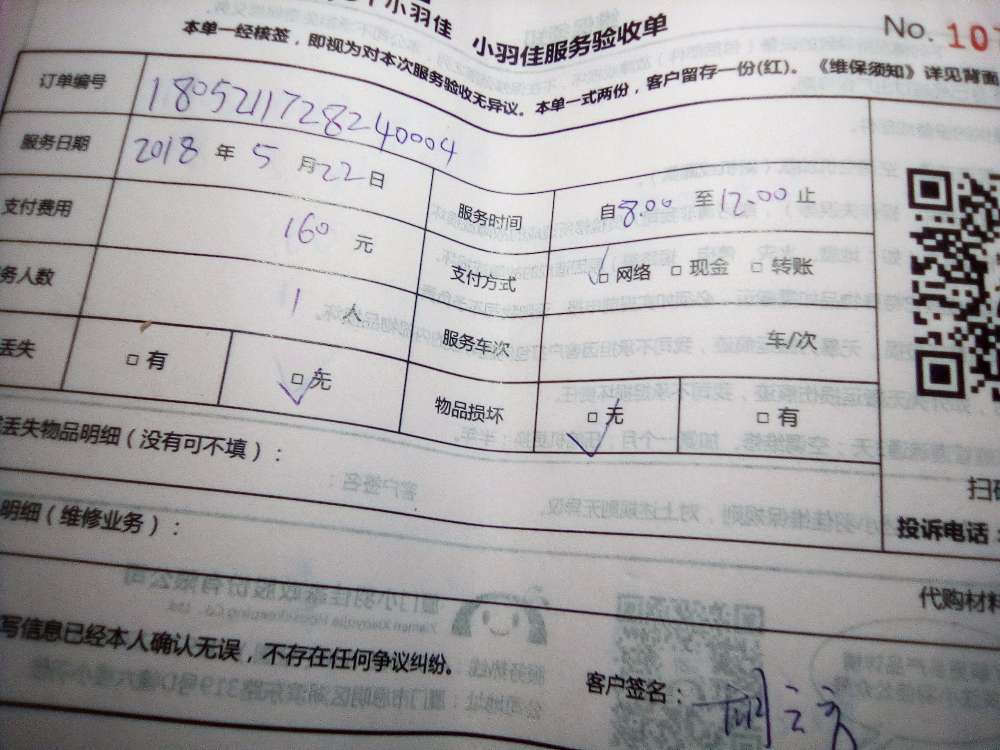 小羽佳 小羽佳服务验收单 No. 10
本单一经核签，即视为对本次服务验收无异议。本单一式两份，客户留存一份(红)。《维保须知》详见背面
订单编号 1805211728240004
服务日期 2018 年 5 月 22 日 服务时间 自 8.00 至 12.00 止
支付费用 160 元 支付方式 □ 网络 □ 现金 □ 转账
务人数 1 人 服务车次 车/次
丢失 □ 有 □ 无 物品损坏 □ 无 □ 有
丢失物品明细（没有可不填）：
扫
明细（维修业务）： 投诉电话：
代购材料
写信息已经本人确认无误，不存在任何争议纠纷。
客户签名：